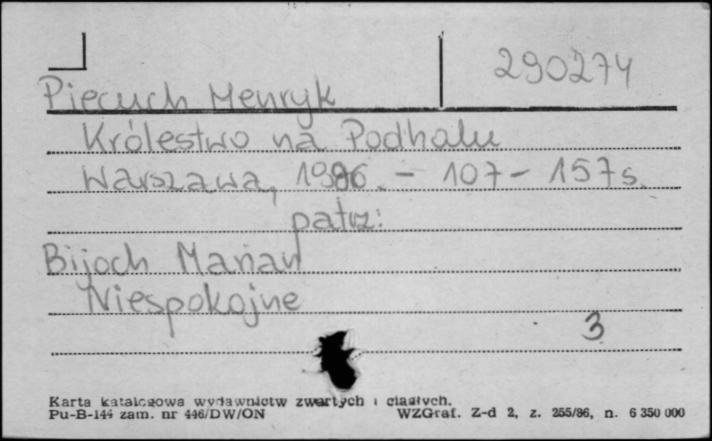 290274
Piecuch Henryk
Królestwo na Podhalu
Warszawa, 1986. - 107 - 157 s.
patrz:
Bijoch Marian
Niespokojne
3
Karta katalogowa wydawnictw zwartych i ciągłych.
Pu-B-144 zam. nr 446/DW/ON WZGraf. Z-d 2, z. 255/86, n. 6 350 000